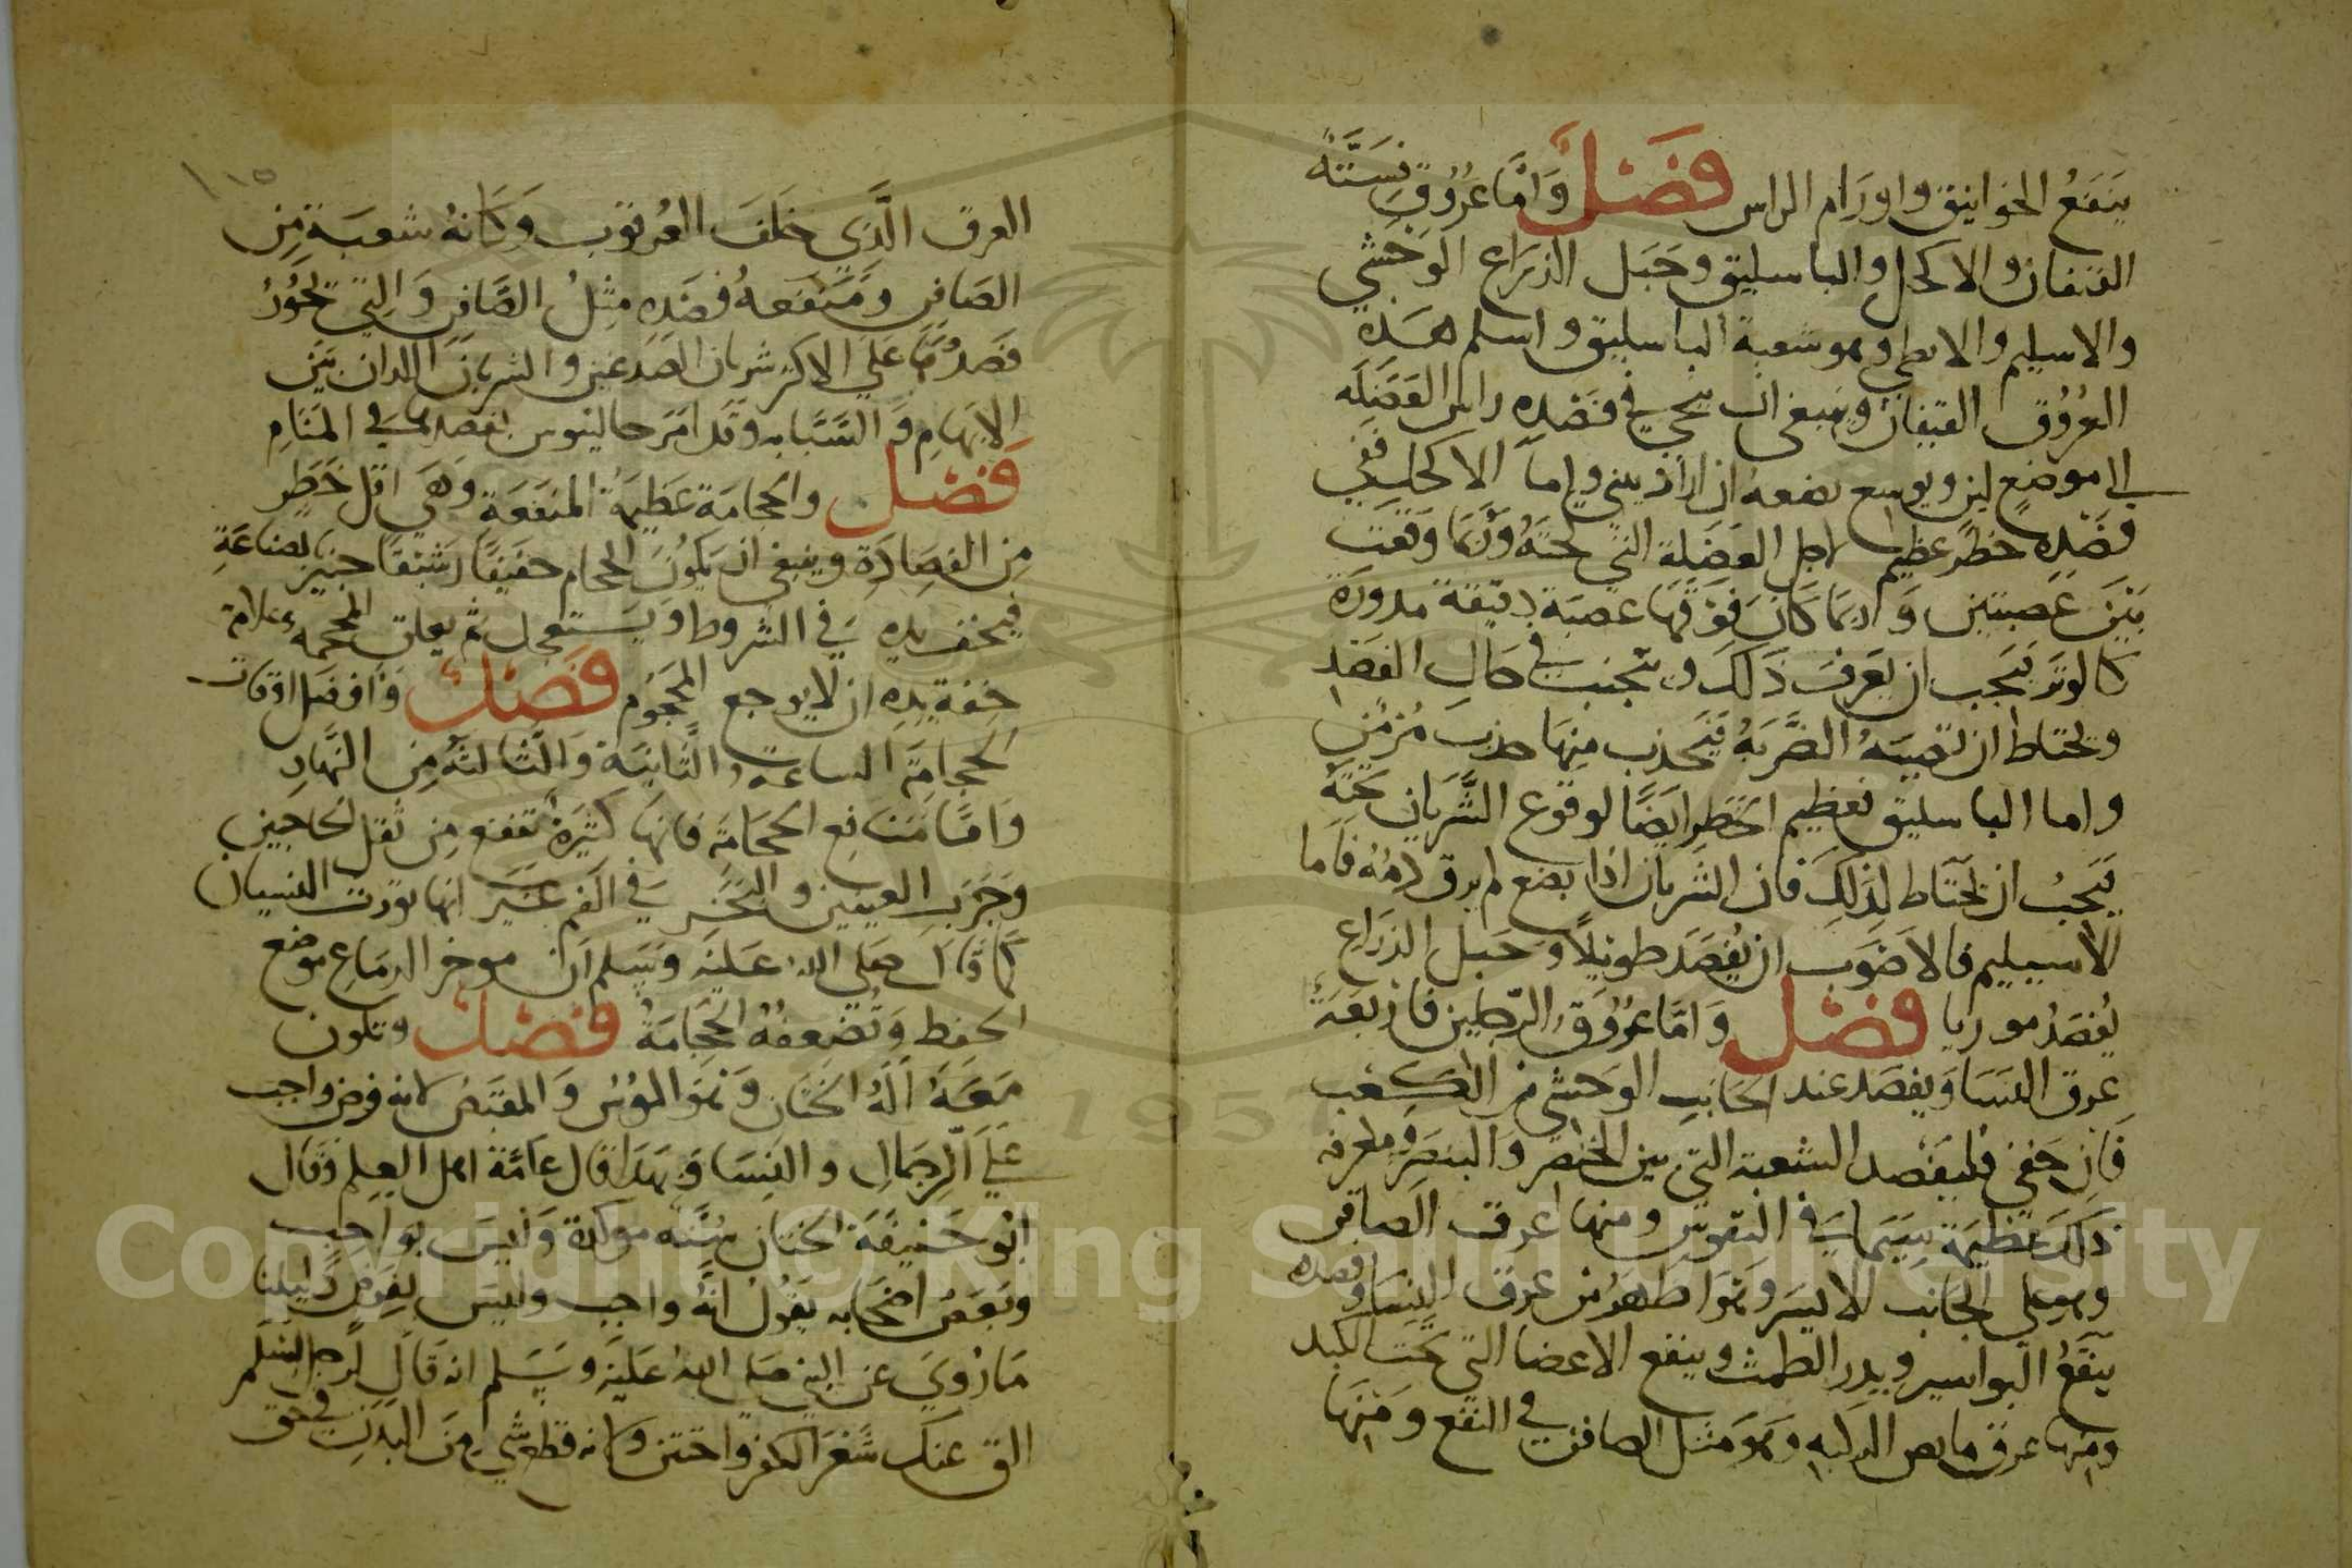 ينفع الخوانيق واورام الراس فصل واما عروق فستة
القيفان والاكحل والباسليق وحبل الذراع الوحشي
والاسيلم والابطي وهو شعبة الباسليق واسلم هذه
العروق القيفان وينبغي ان ينحي في فصده راس العضلة
الى موضع لين ويوسع بضعه ان اراد يثني واما الاكحل ففي
فصده خطر عظيم لاجل العضلة التي تحته وربما وقعت
بين عصبتين وربما كان فوقها عصبة دقيقة مدورة
كالوتر فيجب ان يعرف ذلك ويتجنب في حال الفصد
ويحتاط ان تصيبه الضربة فيحدث منها خدر مزمن
واما الباسليق فعظيم الخطر ايضا لوقوع الشريان تحته
فيجب ان يحتاط لذلك فان الشريان اذا بضع لم يرق دمه فاما
الاسيليم فالاصوب ان يفصد طويلا وحبل الذراع
يفصد موربا فصل واما عروق الرجلين فاربعة
عرق النسا ويفصد عند الجانب الوحشي من الكعب
فان خفي فليفصد الشعبة التي بين الخنصر والبنصر
ذلك عظيمة سيما في النقرس ومنها عرق الصافن
وهو على الجانب الايسر وهو اظهر من عرق النسا وفصده
ينفع البواسير ويدر الطمث وينفع الاعضا التي تحت الكبد
ومنها عرق مابض الركبه وهو مثل الصافن في النفع ومنها
١١٥
العرق الذي خلف العرقوب وكانه شعبة من
الصافن ومنفعة فصده مثل الصافن والتي يجوز
فصدها على الاكثر شريان الصدغين والشريانن اللدان بين
الابهام والسبابه وقد امر جالينوس بفصدهما في المنام
فصل والحجامة عظيمة المنفعة وهي اقل خطر
من الفصادة وينبغي ان يكون الحجام خفيفا رشيقا خبير بصناعة
فيخف يده في الشروط ويستعجل ثم يعلق المحجمه وعلامة
خفة يده ان لا يوجع المحجوم فصل وافضل اوقات
الحجامة الساعة الثانية والثالثة من النهار
واما منافع الحجامة فانها كثيرة تنفع من ثقل الحاجبين
وجرب العينين والبخر في الفم غير انها تورث النسيان
كما قال صلى الله عليه وسلم ان موخر الدماغ موضع
الحفظ وتضعفه الحجامة فصل وتكون
معه الة الختان وهو الموس والمقص لانه فرض واجب
على الرجال والنسا وبهذا قال عامة اهل العلم وقال
ابو حنيفة الختان سنه موكدة وليس بواجب
وبعض اصحابه يقول انه واجب وليس بفرض دليلنا
ما روي عن النبي صلى الله عليه وسلم انه قال لرجل اسلم
الق عنك شعر الكفر واختتن ولانه قطع شي من البدن